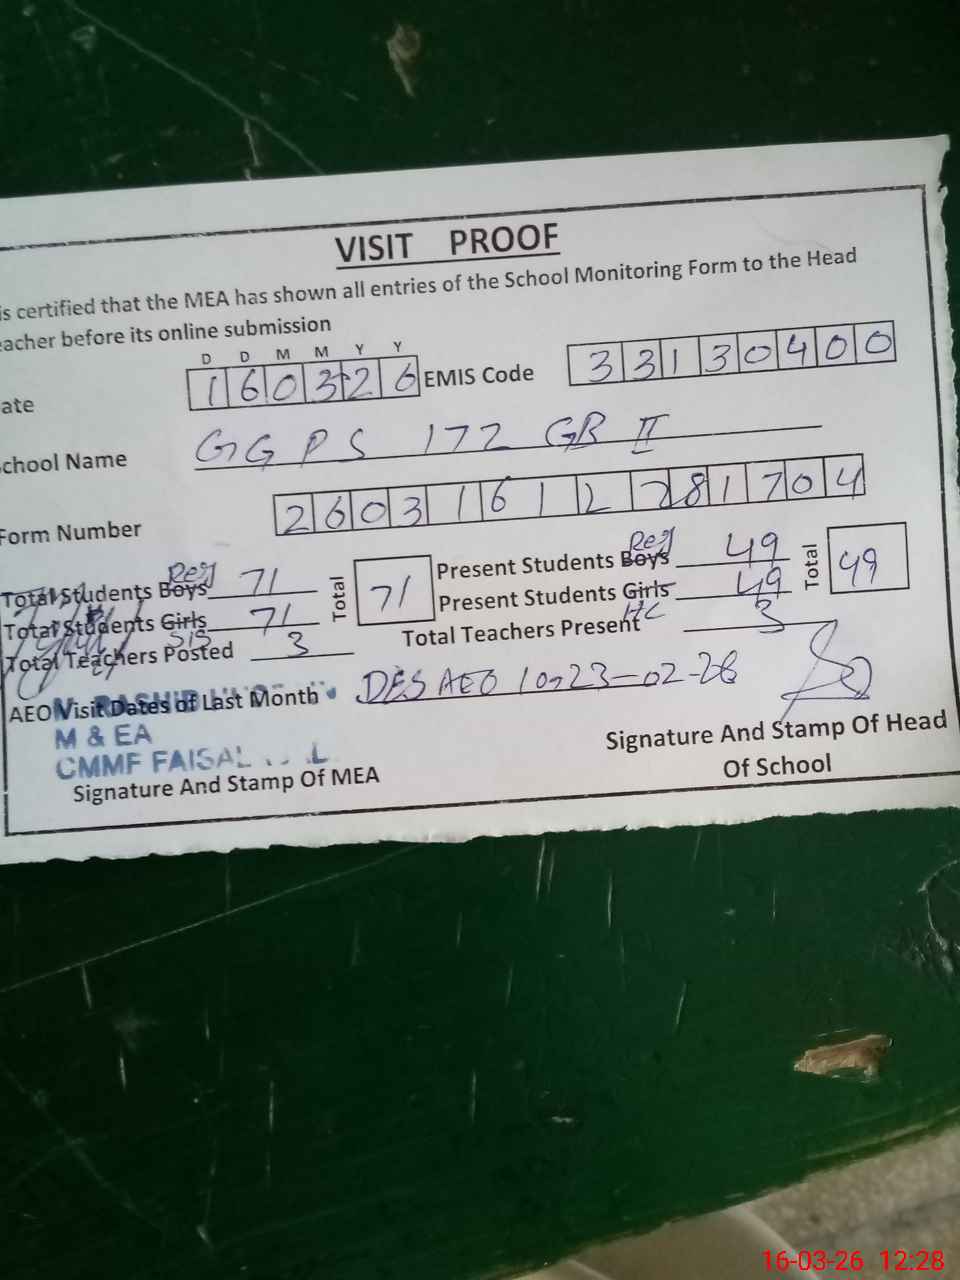 VISIT PROOF
is certified that the MEA has shown all entries of the School Monitoring Form to the Head
eacher before its online submission
D D M M Y Y
ate 160326 EMIS Code 33130400
chool Name GGPS 172 GB II
Form Number 26031612281704
Total Students Boys Reg 71 Total 71 Present Students Boys Reg 49 Total 49
Total Students Girls SIS 71 Present Students Girls HC 49
Total Teachers Posted 3 Total Teachers Present 3
AEO Visit Dates of Last Month DES AEO 23-02-26
M & EA
CMMF FAISAL
Signature And Stamp Of MEA Signature And Stamp Of Head
Of School
16-03-26 12:28